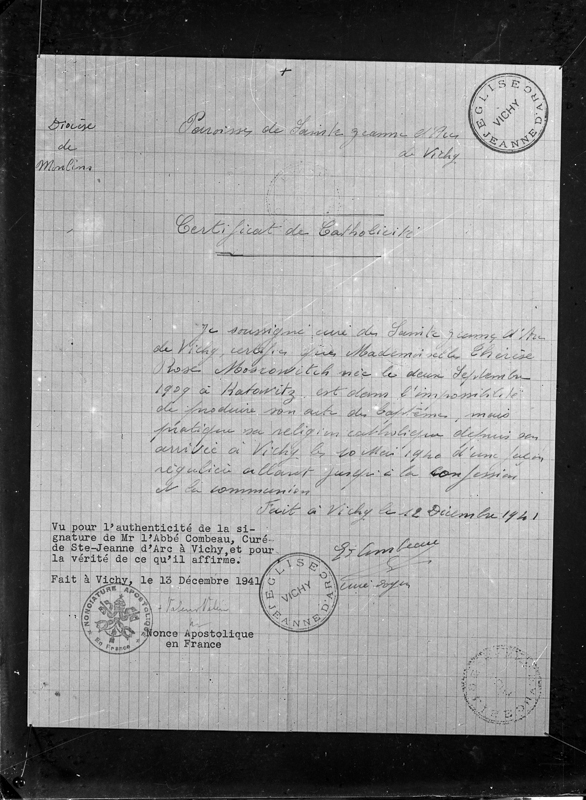 EGLISE JEANNE D'ARC
VICHY
Diocèse
de
Moulins
Paroisse de Sainte Jeanne d'Arc
de Vichy
Certificat de Catholicité
Je soussigné curé de Sainte Jeanne d'Arc
de Vichy, certifie que Mademoiselle Thérèse
Rose Moscowitch née le deux Septembre
1909 à Katowitz est dans l'impossibilité
de produire son acte de baptême, mais
pratique sa religion catholique depuis son
arrivée à Vichy le 10 Mai 1940 d'une façon
régulière allant jusqu'à la confession
et la communion
Fait à Vichy le 12 Décembre 1941
Combeau
Vu pour l'authenticité de la si-
gnature de Mr l'Abbé Combeau, Curé-
de Ste-Jeanne d'Arc à Vichy, et pour
la vérité de ce qu'il affirme.
Fait à Vichy, le 13 Décembre 1941
EGLISE JEANNE D'ARC
VICHY
NONCIATURE APOSTOLIQUE
En France
Nonce Apostolique
en France